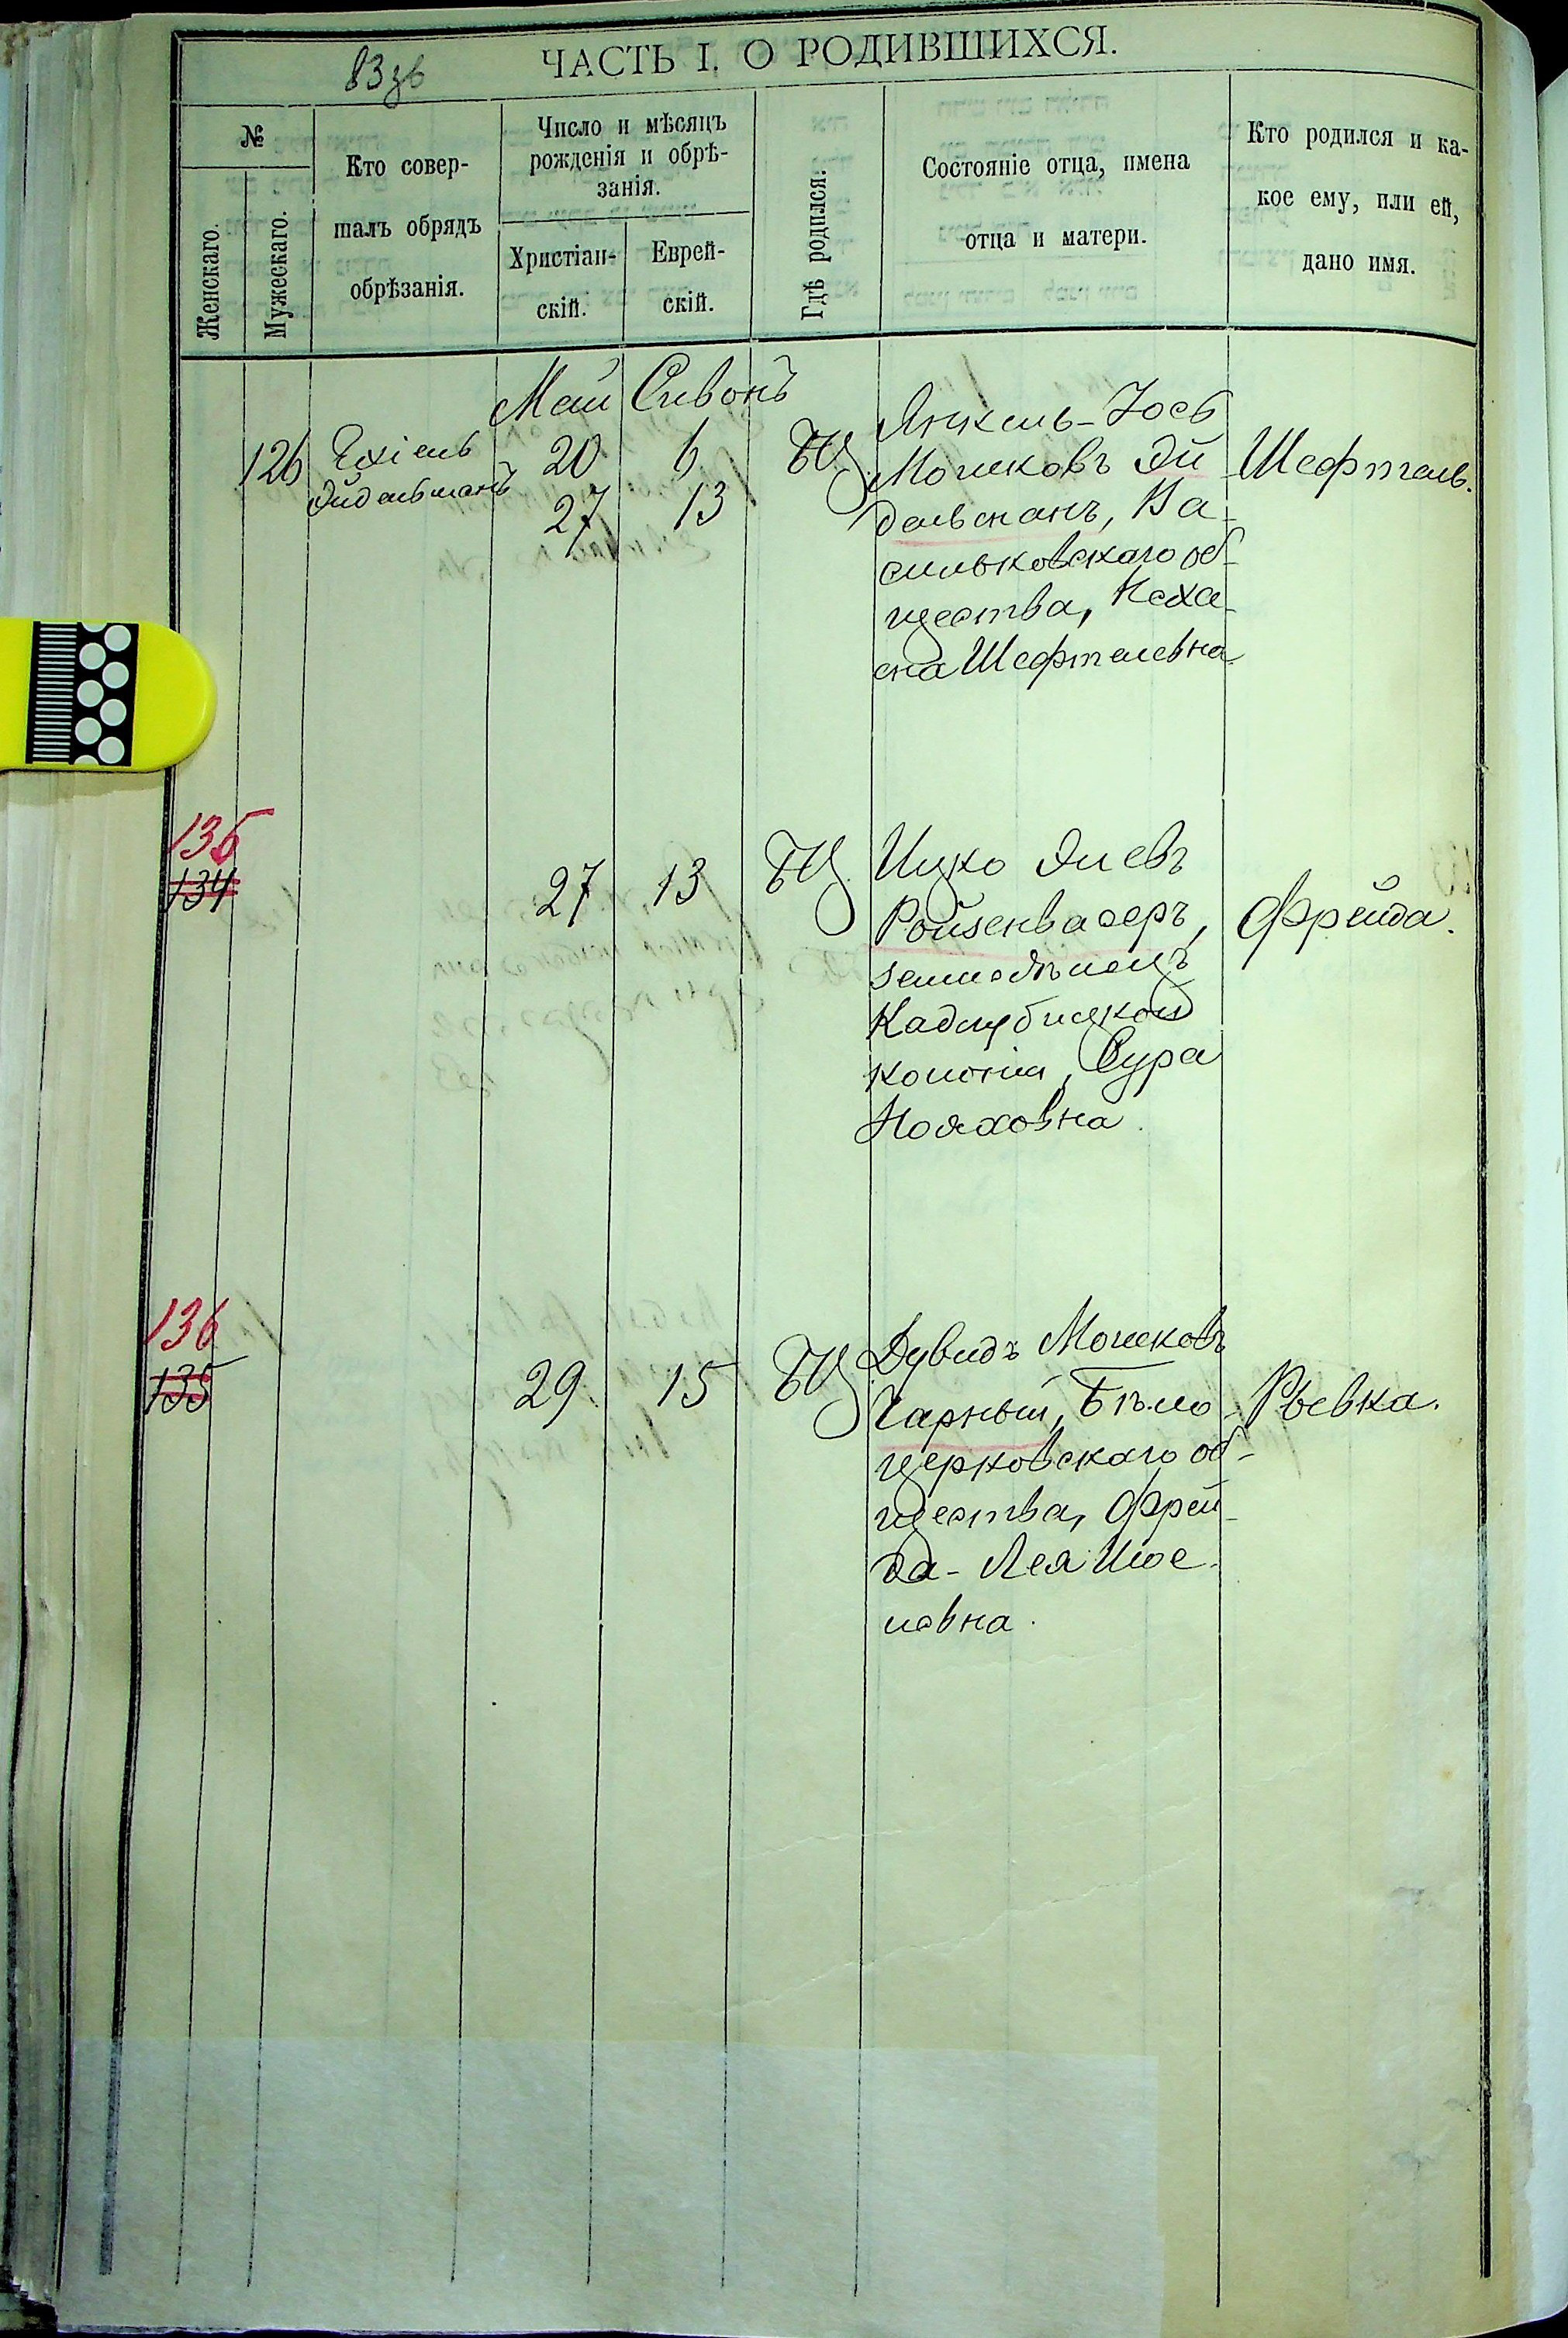 83 зв
ЧАСТЬ I. О РОДИВШИХСЯ.
№
Женскаго.
Мужескаго.
Кто совер-
шалъ обрядъ
обрѣзанія.
Число и мѣсяцъ
рожденія и обрѣ-
занія.
Христіан-
скій.
Еврей-
скій.
Гдѣ родился.
Состояніе отца, имена
отца и матери.
Кто родился и ка-
кое ему, или ей,
дано имя.
Май Сивонъ
126 Ехіель
Эйдельманъ
20 6
27 13
БЦ
Янкель-Іосъ
Мошковъ Эй
дельманъ, Ва-
сильковскаго об-
щества, Неха-
ма Шефтелевна
Шефтель.
135
134
27 13 БЦ
Ицко Элевъ
Ройзенвасеръ,
земледѣлецъ
Кадлубицкой
колоніи, Сура
Нояховна.
Фрейда.
136
135
29 15 БЦ
Дувидъ Мошковъ
Чарный, Бѣло-
церковскаго об-
щества, Фрей-
да-Лея
левна.
Рывка.